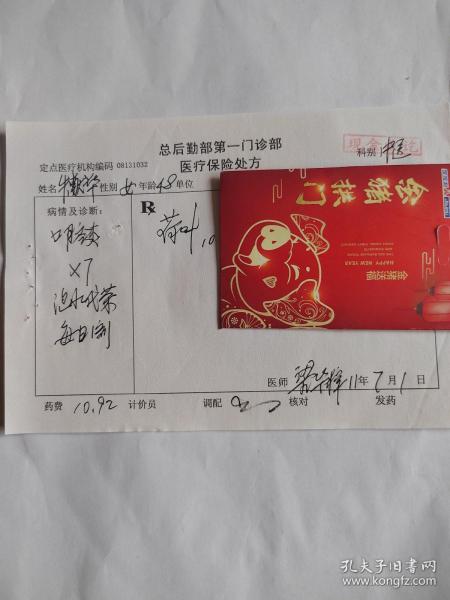 总后勤部第一门诊部
定点医疗机构编码 08131032
医疗保险处方
现金
科别 中医
姓名 性别 女 年龄 48 单位
病情及诊断:
R
荷叶 10
x7
泡水代茶
每日1剂
金猪拱门
金猪送福
HAPPY NEW YEAR
医师 11年7月1日
药费 10.92 计价员 调配 核对 发药
孔夫子旧书网
www.kongfz.com